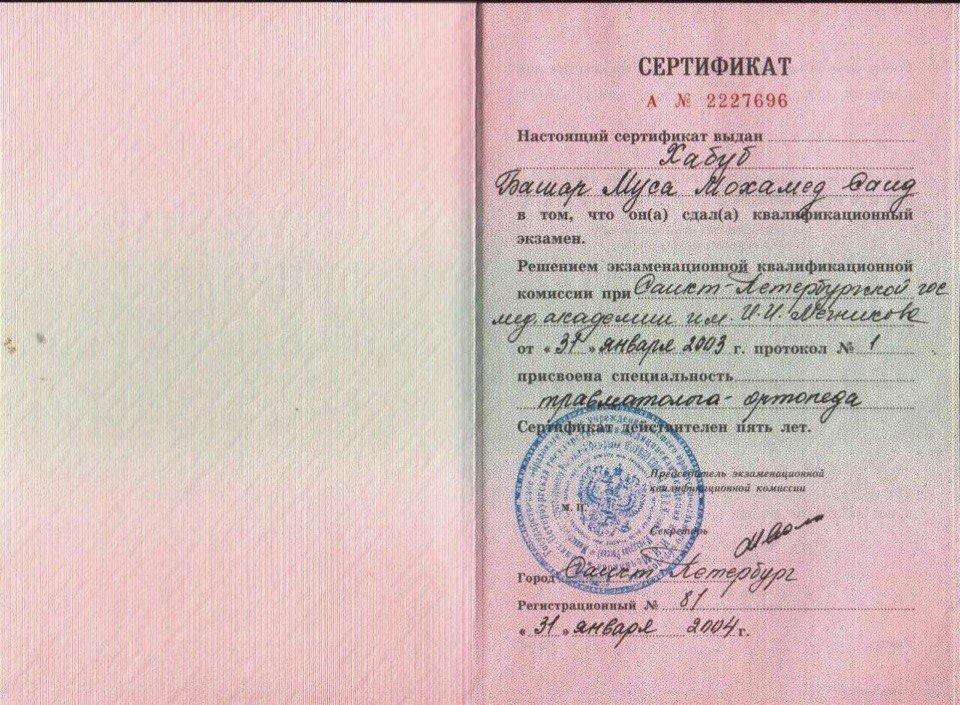 СЕРТИФИКАТ
А № 2227696
Настоящий сертификат выдан
Хабуб
Башар Муса Мохамед Саид
в том, что он(а) сдал(а) квалификационный
экзамен.
Решением экзаменационной квалификационной
комиссии при Санкт-Петербургской гос
мед. академии им. И.И. Мечникова
от «31» января 2003 г. протокол № 1
присвоена специальность
травматолога-ортопеда
Сертификат действителен пять лет.
Председатель экзаменационной
квалификационной комиссии
М. П.
Секретарь
Город Санкт-Петербург
Регистрационный № 81
«31» января 2004 г.